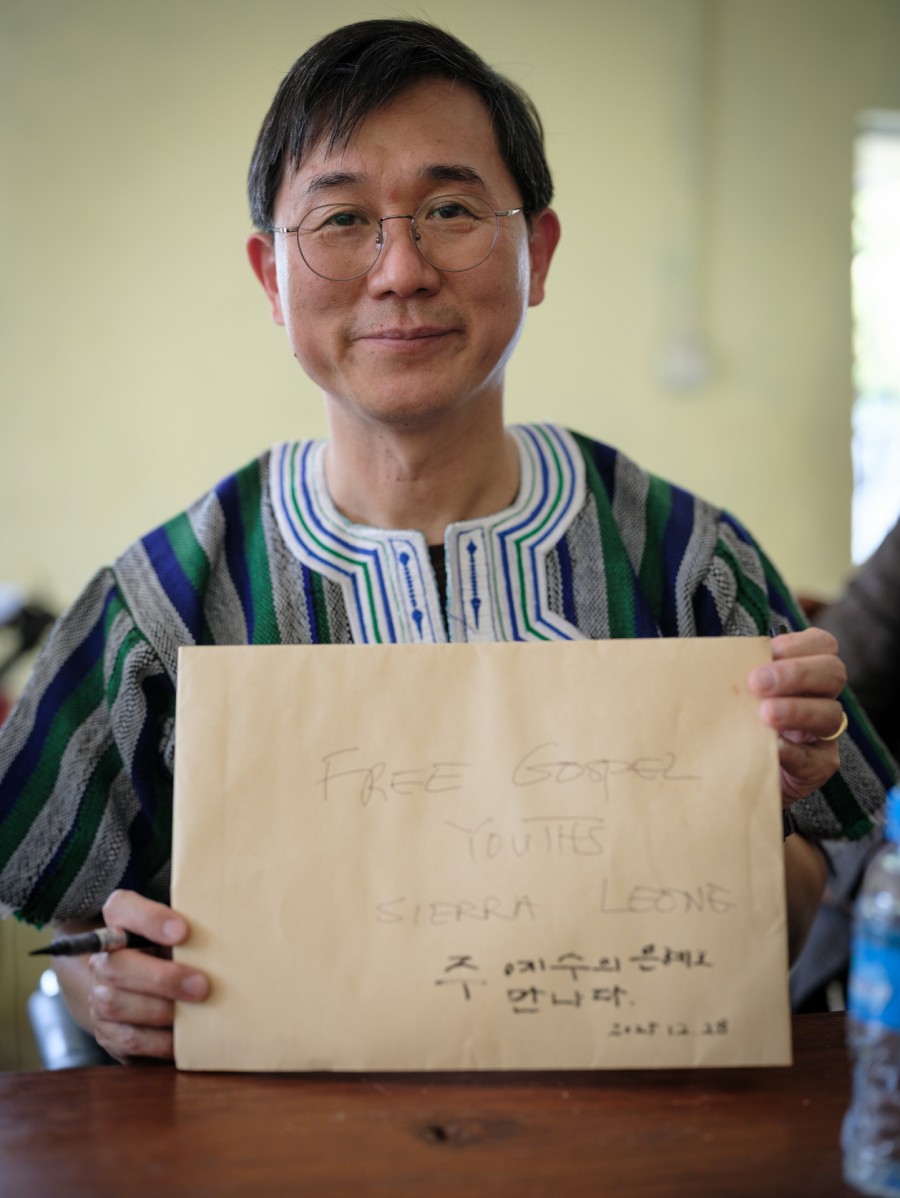 FREE GOSPEL
YOUTHS
SIERRA LEONE
주 예수의 은혜로
만나다.
2025.12.28